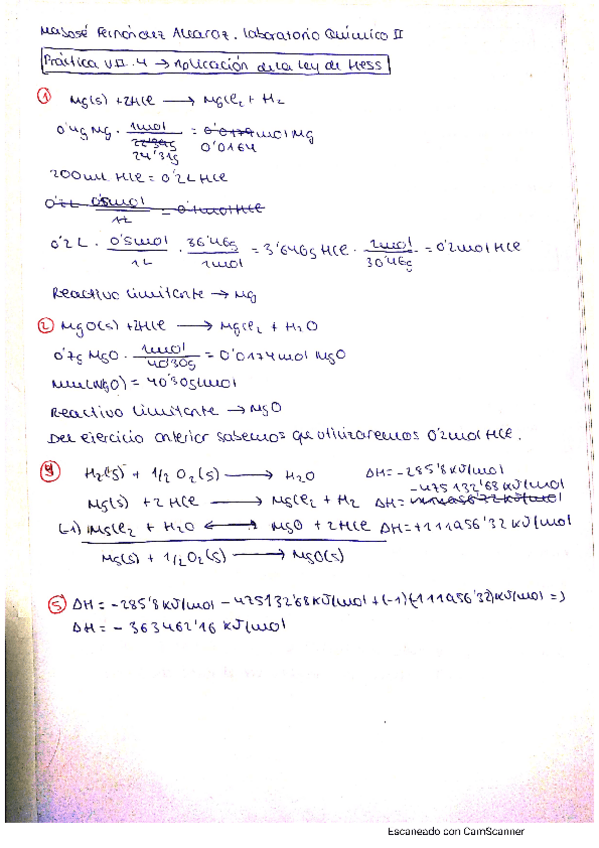 Mª José Fernández Alcaraz. Laboratorio Químico II
Práctica VII.4 → Aplicación de la Ley de Hess
① Mg(s) + 2HCl ⟶ MgCl₂ + H₂
0'4g Mg · 1mol / 22'34g 24'31g = 0'0179 0'0164 mol Mg
200 mL HCl = 0'2L HCl
0'2L 0'5mol / 1L = 0'1mol HCl
0'2L · 0'5mol / 1L · 36'46g / 1mol = 3'646g HCl · 1mol / 36'46g = 0'2mol HCl
Reactivo limitante → Mg
② MgO(s) + 2HCl ⟶ MgCl₂ + H₂O
0'7g MgO · 1mol / 40'30g = 0'0174 mol MgO
Mm(MgO) = 40'30g/mol
Reactivo limitante → MgO
Del ejercicio anterior sabemos que utilizaremos 0'2mol HCl.
④ H₂(g) + 1/2 O₂(g) ⟶ H₂O ΔH = -285'8 KJ/mol
-475132'68 KJ/mol
Mg(s) + 2HCl ⟶ MgCl₂ + H₂ ΔH=
(-1) MgCl₂ + H₂O ⟷ MgO + 2HCl ΔH = +111956'32 KJ/mol
Mg(s) + 1/2 O₂(g) ⟶ MgO(s)
⑤ ΔH = -285'8 KJ/mol - 475132'68 KJ/mol + (-1)(-111956'32) KJ/mol =>
ΔH = - 363462'16 KJ/mol
Escaneado con CamScanner